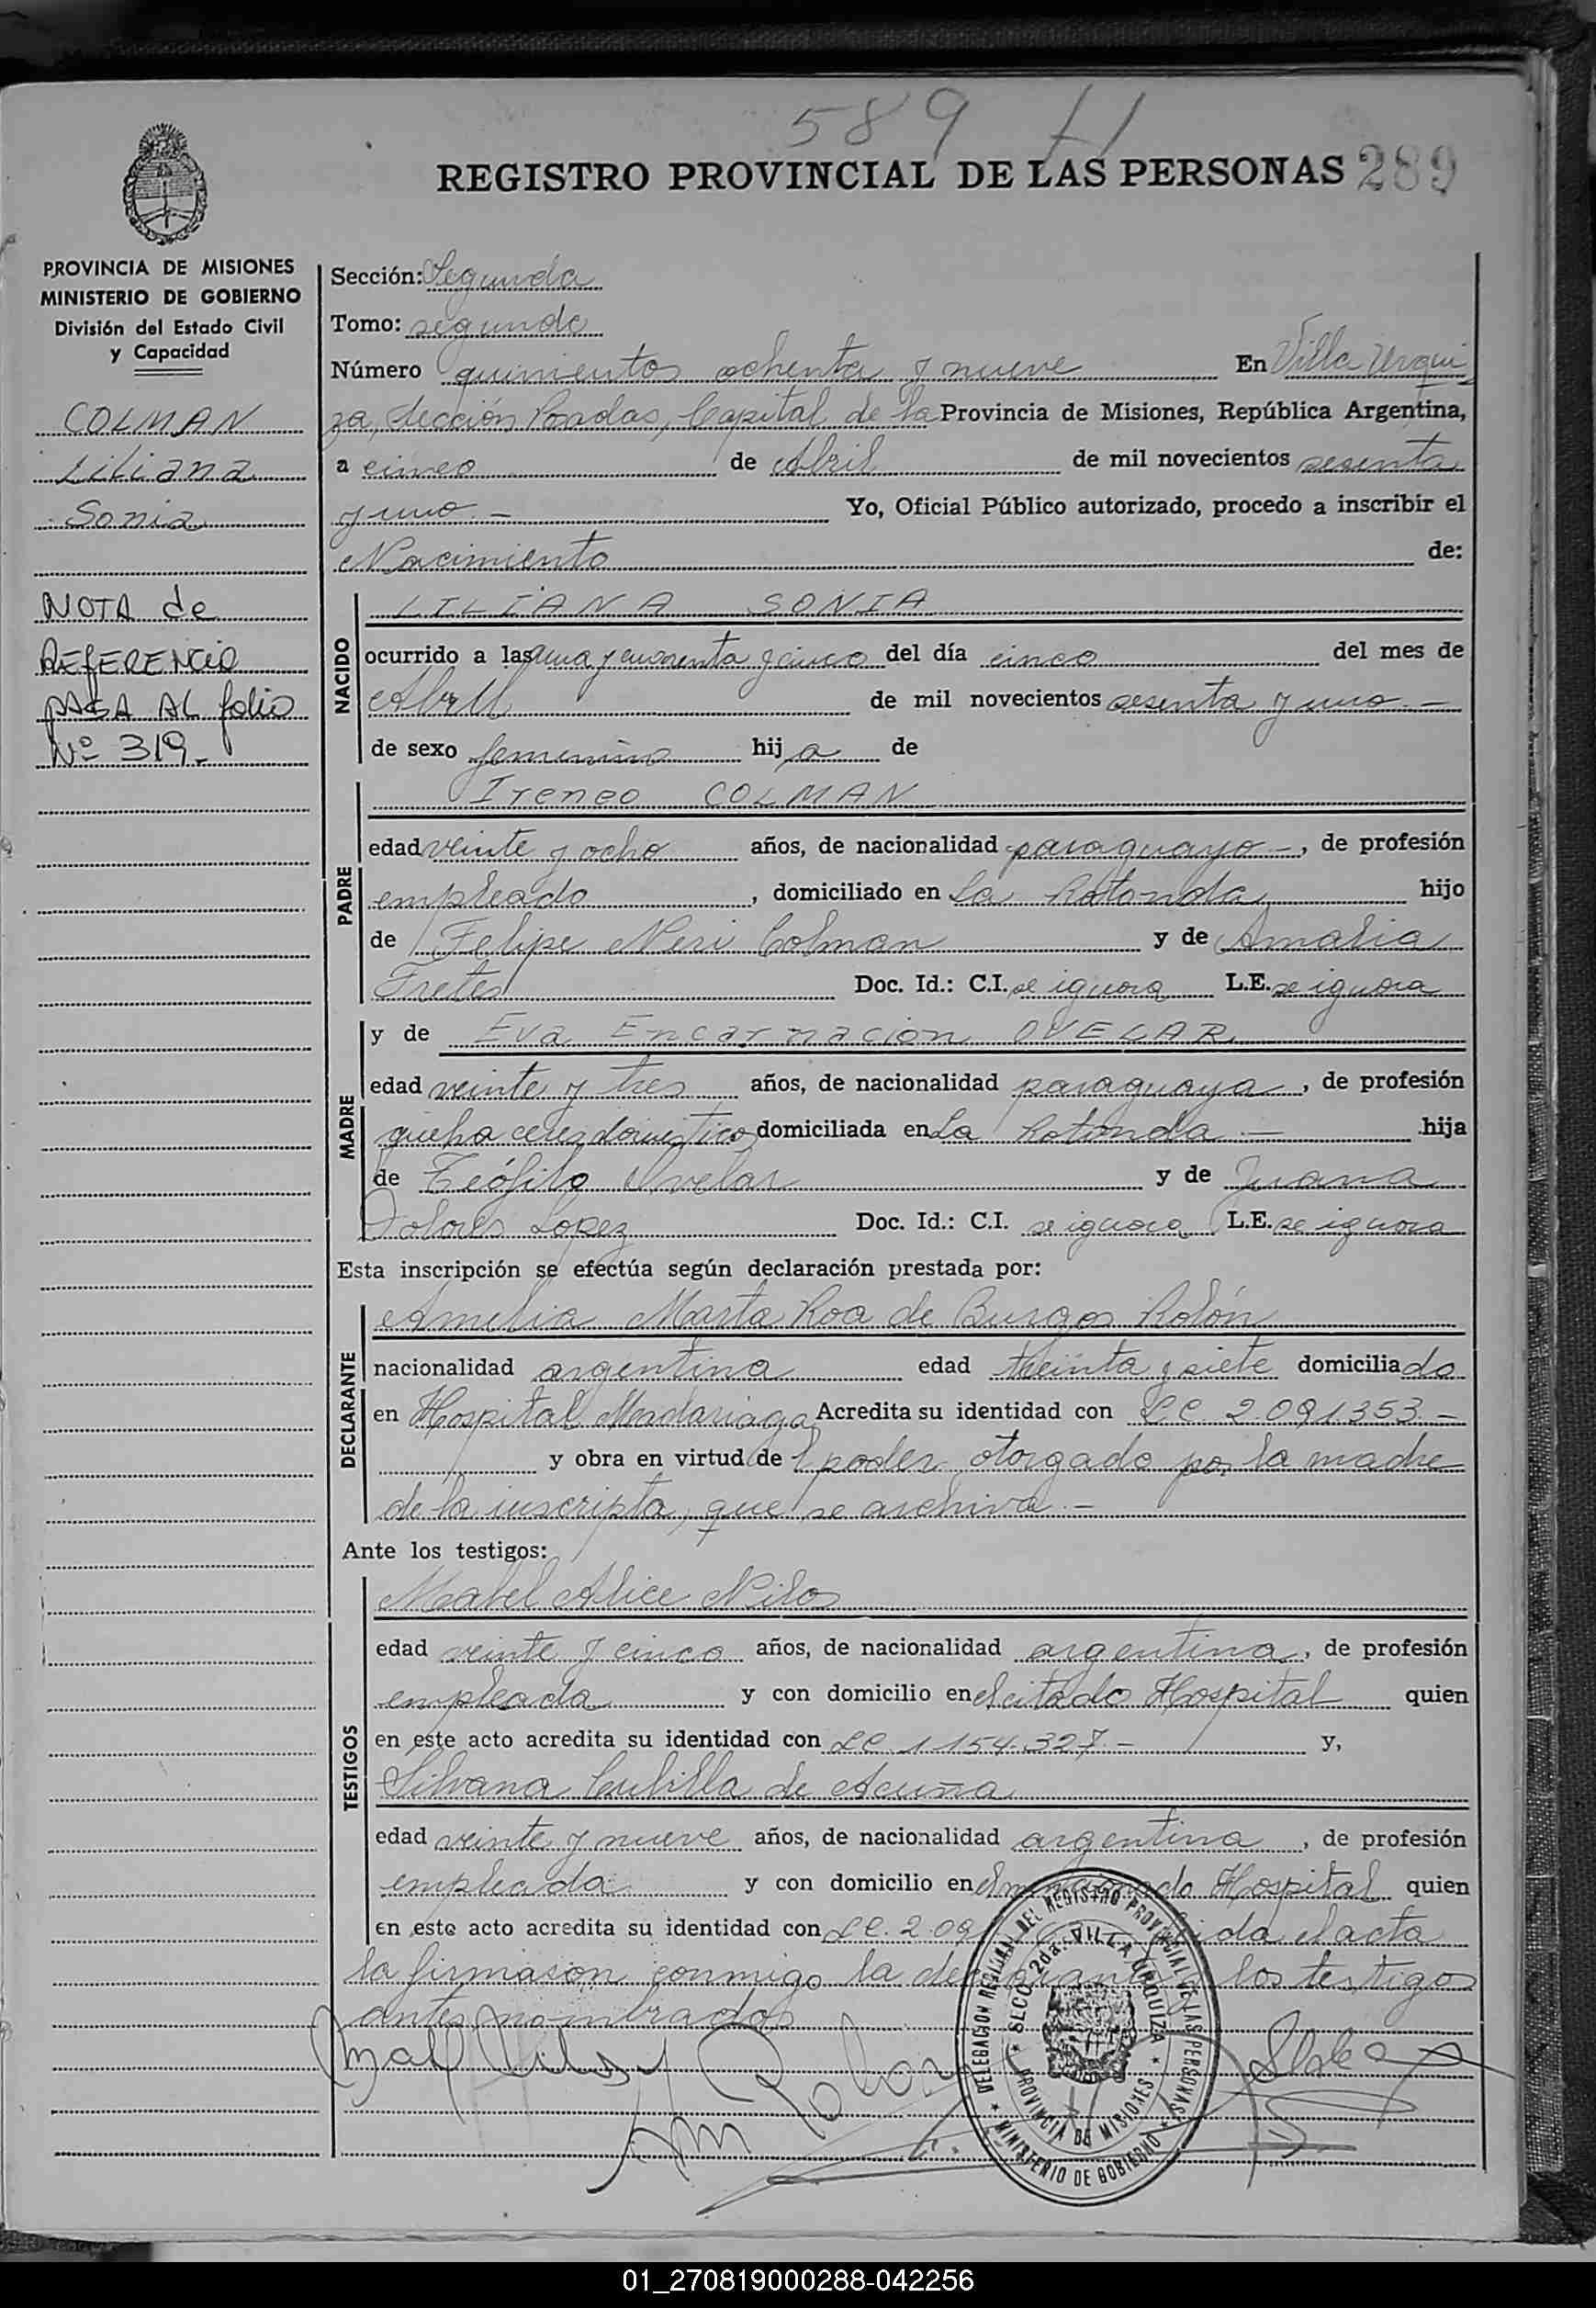 589
REGISTRO PROVINCIAL DE LAS PERSONAS 289
PROVINCIA DE MISIONES
MINISTERIO DE GOBIERNO
División del Estado Civil
y Capacidad
COLMAN
Liliana
Sonia
NOTA de
REFERENCIA
PASA AL folio
Nº 319.-
Sección: Segunda
Tomo: segundo
Número quinientos ochenta y nueve En Villa Urqui
za, Sección Posadas, Capital de la Provincia de Misiones, República Argentina,
a cinco de Abril de mil novecientos sesenta
y uno.- Yo, Oficial Público autorizado, procedo a inscribir el
Nacimiento de:
NACIDO
LILIANA SONIA
ocurrido a las una y cuarenta y cinco del día cinco del mes de
Abril de mil novecientos sesenta y uno.-
de sexo femenino hija de
PADRE
Ireneo COLMAN
edad veinte y ocho años, de nacionalidad paraguayo-, de profesión
empleado, domiciliado en La Rotonda, hijo
de Felipe Neri Colman y de Amalia
Fretes Doc. Id.: C.I. se ignora L.E. se ignora
y de Eva Encarnacion OVELAR
MADRE
edad veinte y tres años, de nacionalidad paraguaya, de profesión
queha ceres domestico domiciliada en La Rotonda.- hija
de Teófilo Ovelar y de Juana
Dolores Lopez Doc. Id.: C.I. se ignora L.E. se ignora
Esta inscripción se efectúa según declaración prestada por:
DECLARANTE
Amelia Marta Roa de Burgos Rolón
nacionalidad argentina edad treinta y siete domiciliada
en Hospital Madariaga Acredita su identidad con L.C. 2.091.353.-
y obra en virtud del poder otorgado por la madre
de la inscripta, que se archiva.-
Ante los testigos:
TESTIGOS
Mabel Alice Nilos
edad veinte y cinco años, de nacionalidad argentina, de profesión
empleada y con domicilio en el citado Hospital quien
en este acto acredita su identidad con LC 1154.327.- y,
Silvana Cubilla de Acuña
edad veinte y nueve años, de nacionalidad argentina, de profesión
empleada y con domicilio en el Hospital quien
en este acto acredita su identidad con LC. 2.09 da el acta
la firmaron conmigo la los testigos
antes nombrados
DELEGACION REGIONAL DEL REGISTRO PROVINCIAL DE LAS PERSONAS
MINISTERIO DE GOBIERNO
SECC. 2da. VILLA URQUIZA
PROVINCIA DE MISIONES
01_270819000288-042256